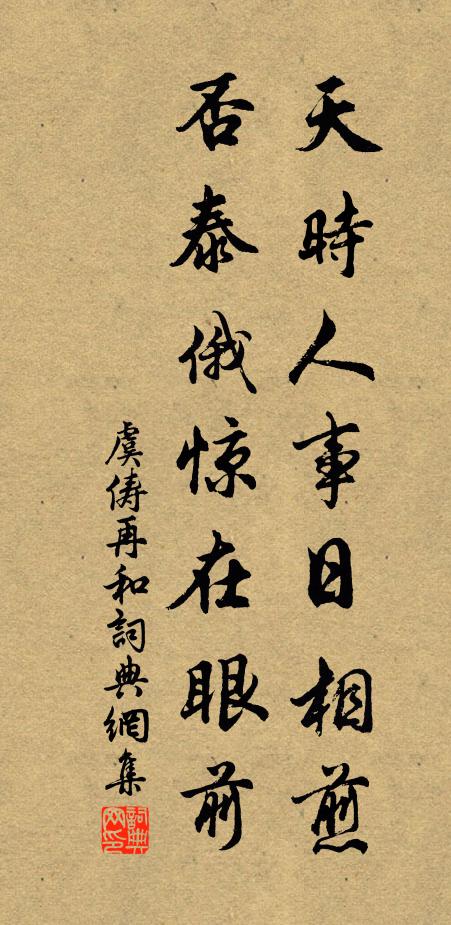 天時人事日相煎
否泰俄惊在眼前
虞俦再和詞典網集
詞典网印